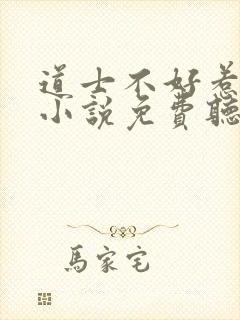 道士不好惹
小說免費聽
馬家宅